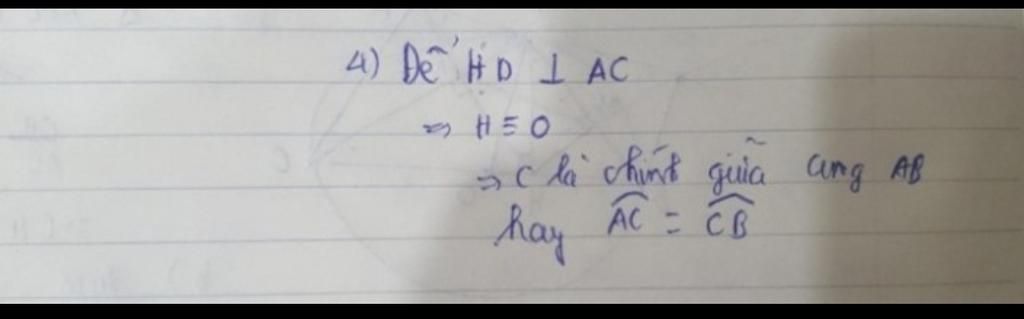 4) Để HD ⊥ AC
⇔ H ≡ O
⇒ C là chính giữa cung AB
hay A͡C = C͡B